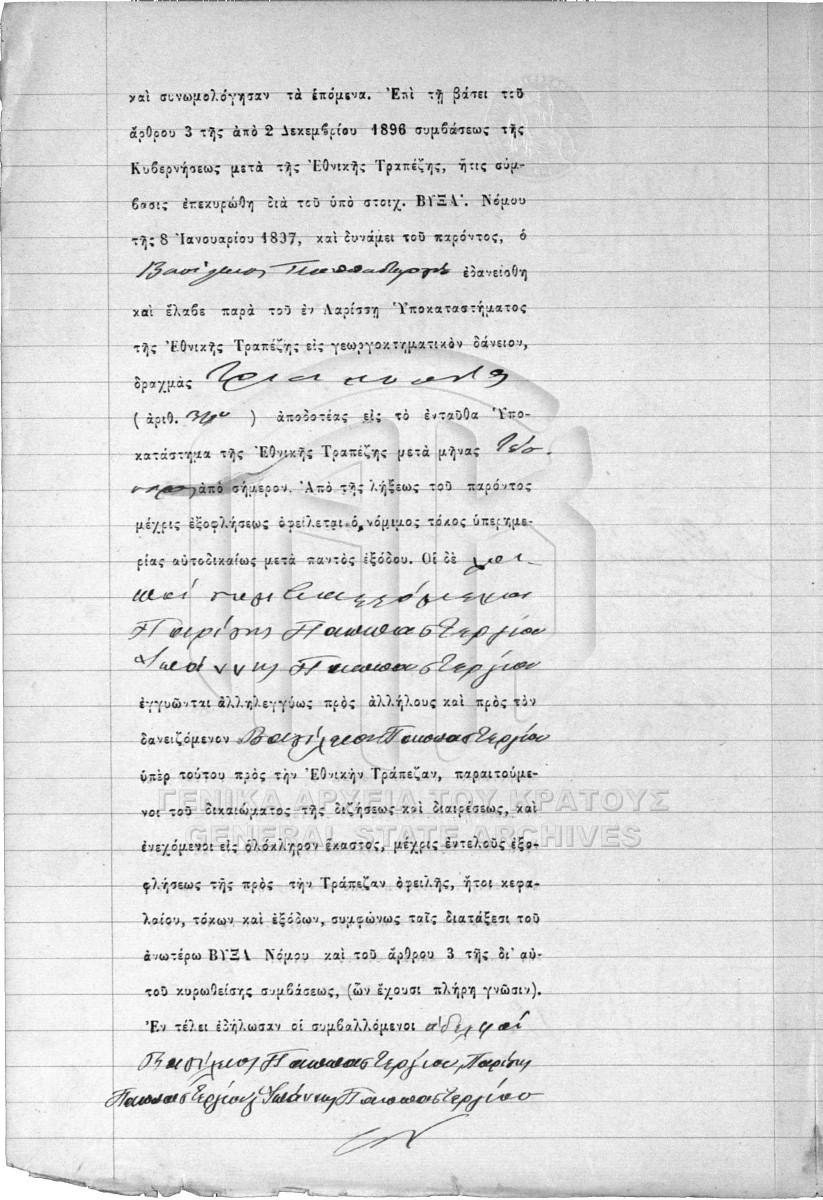 καὶ συνωμολόγησαν τὰ ἑπόμενα. Ἐπὶ τῇ βάσει τοῦ
ἄρθρου 3 τῆς ἀπὸ 2 Δεκεμβρίου 1896 συμβάσεως τῆς
Κυβερνήσεως μετὰ τῆς Ἐθνικῆς Τραπέζης, ἥτις σύμ-
βασις ἐπεκυρώθη διὰ τοῦ ὑπὸ στοιχ. ΒΥΞΑʹ. Νόμου
τῆς 8 Ἰανουαρίου 1897, καὶ δυνάμει τοῦ παρόντος, ὁ
Βασίλειος Παππαστεργίου ἐδανείσθη
καὶ ἔλαβε παρὰ τοῦ ἐν Λαρίσσῃ Ὑποκαταστήματος
τῆς Ἐθνικῆς Τραπέζης εἰς γεωργοκτηματικὸν δάνειον,
δραχμὰς
(ἀριθ. ) ἀποδοτέας εἰς τὸ ἐνταῦθα Ὑπο-
κατάστημα τῆς Ἐθνικῆς Τραπέζης μετὰ μῆνας τέσ-
σαρας ἀπὸ σήμερον. Ἀπὸ τῆς λήξεως τοῦ παρόντος
μέχρις ἐξοφλήσεως ὀφείλεται ὁ νόμιμος τόκος ὑπερημε-
ρίας αὐτοδικαίως μετὰ παντὸς ἐξόδου. Οἱ δὲ λοι-
ποί
Παρίσης Παππαστεργίου
Ἰωάννης Παππαστεργίου
ἐγγυῶνται ἀλληλεγγύως πρὸς ἀλλήλους καὶ πρὸς τὸν
δανειζόμενον Βασίλειον Παππαστεργίου
ὑπὲρ τούτου πρὸς τὴν Ἐθνικὴν Τράπεζαν, παραιτούμε-
νοι τοῦ δικαιώματος τῆς διζήσεως καὶ διαιρέσεως, καὶ
ΓΕΝΙΚΑ ΑΡΧΕΙΑ ΤΟΥ ΚΡΑΤΟΥΣ
GENERAL STATE ARCHIVES
ἐνεχόμενοι εἰς ὁλόκληρον ἕκαστος, μέχρις ἐντελοῦς ἐξο-
φλήσεως τῆς πρὸς τὴν Τράπεζαν ὀφειλῆς, ἤτοι κεφα-
λαίου, τόκων καὶ ἐξόδων, συμφώνως ταῖς διατάξεσι τοῦ
ἀνωτέρω ΒΥΞΑ Νόμου καὶ τοῦ ἄρθρου 3 τῆς δι' αὐ-
τοῦ κυρωθείσης συμβάσεως, (ὧν ἔχουσι πλήρη γνῶσιν).
Ἐν τέλει ἐδήλωσαν οἱ συμβαλλόμενοι ἀδελφοί
Βασίλειος Παππαστεργίου, Παρίσης
Παππαστεργίου Ἰωάννης Παππαστεργίου